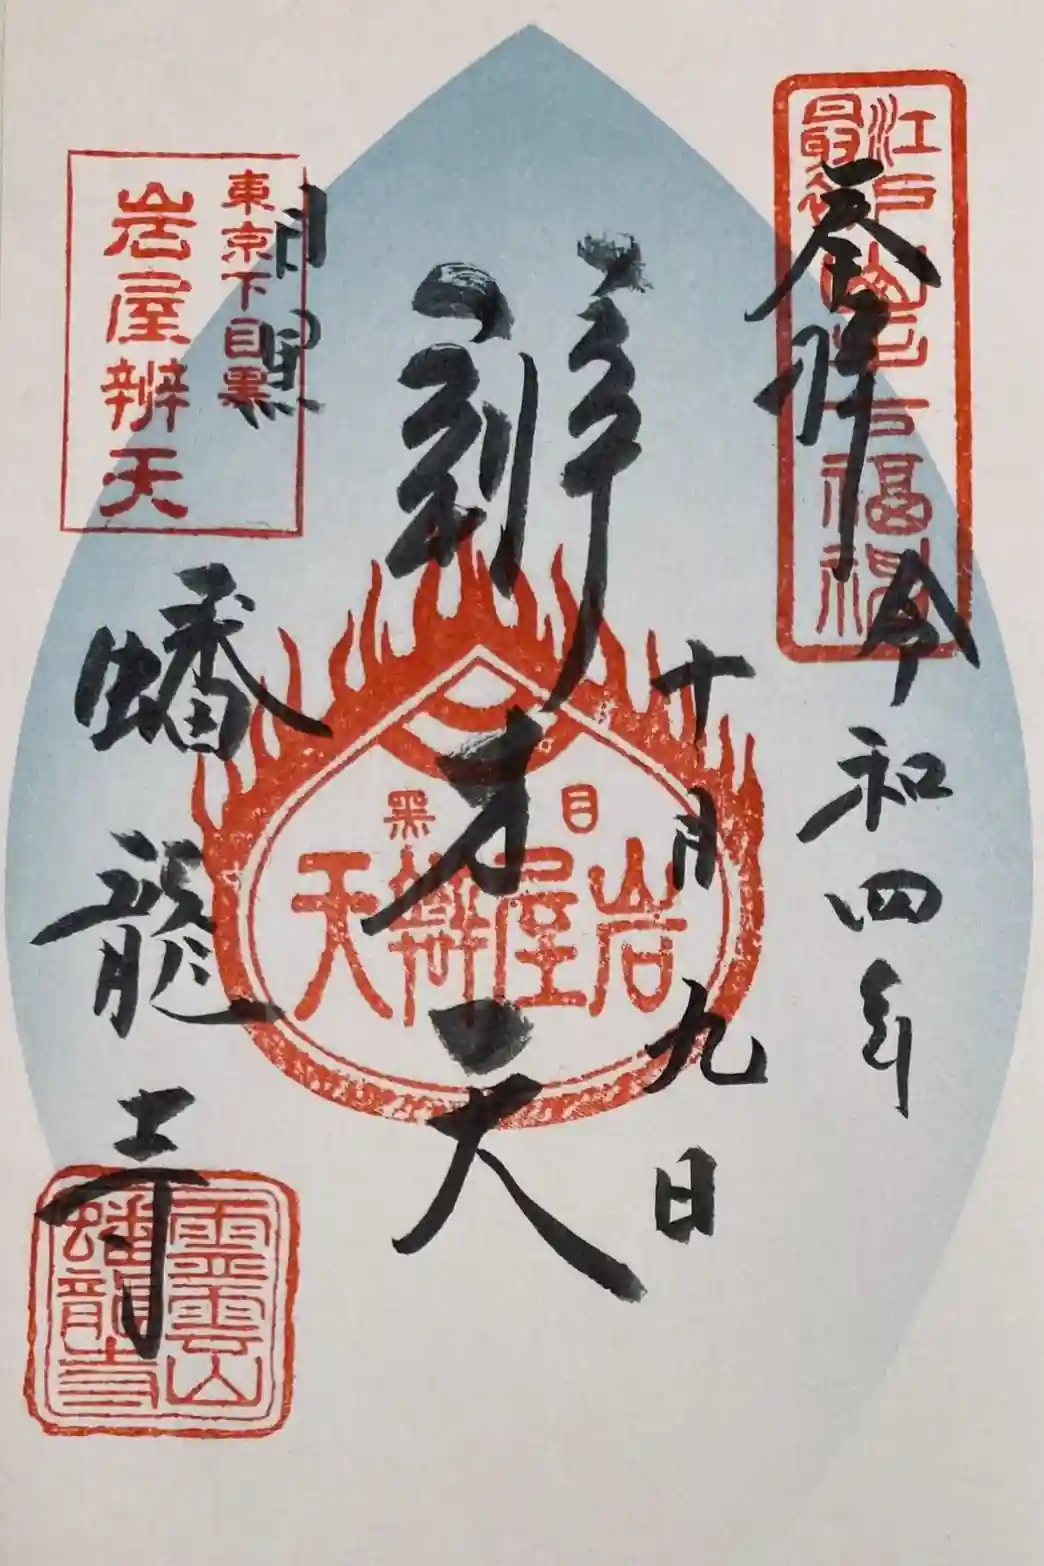 江戸
最初
奉拝
令和四年
十月九日
辨才天
目黒
岩屋辨天
目黒
東京下目黒
岩屋辨天
蟠龍寺
霊雲山
蟠龍寺